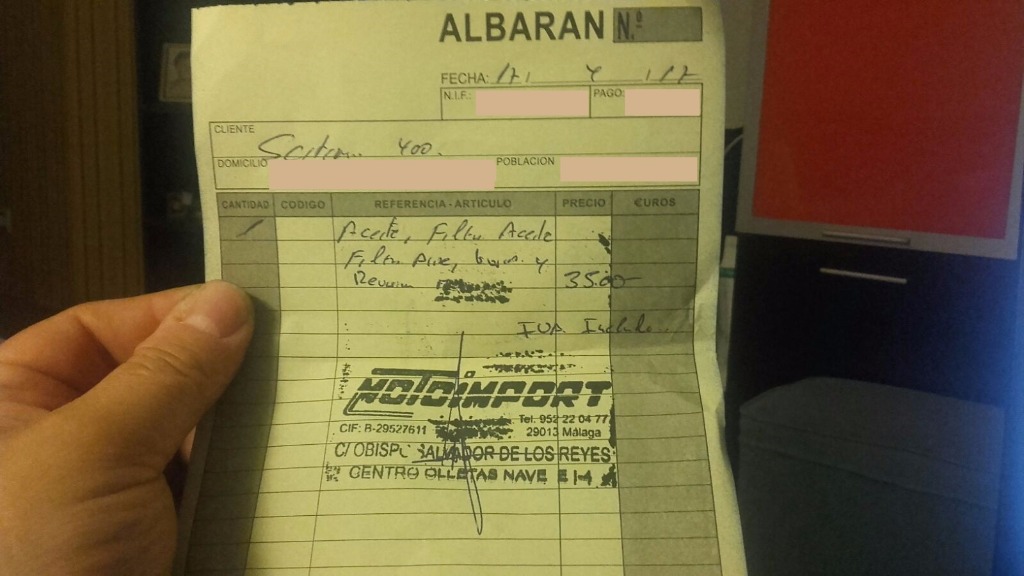 ALBARAN N.º
FECHA: 17 4 17
N.I.F.: PAGO:
CLIENTE
400
DOMICILIO POBLACION
CANTIDAD CODIGO REFERENCIA - ARTICULO PRECIO €UROS
1 Aceite, Filtro Aceite
Filtro Aire, y
Revision 35.00
IVA Incluido
MOTOIMPORT
Tel. 952 22 04 77
CIF: B-29527611 29013 Málaga
C/OBISPO SALVADOR DE LOS REYES
CENTRO OLLETAS NAVE E 14